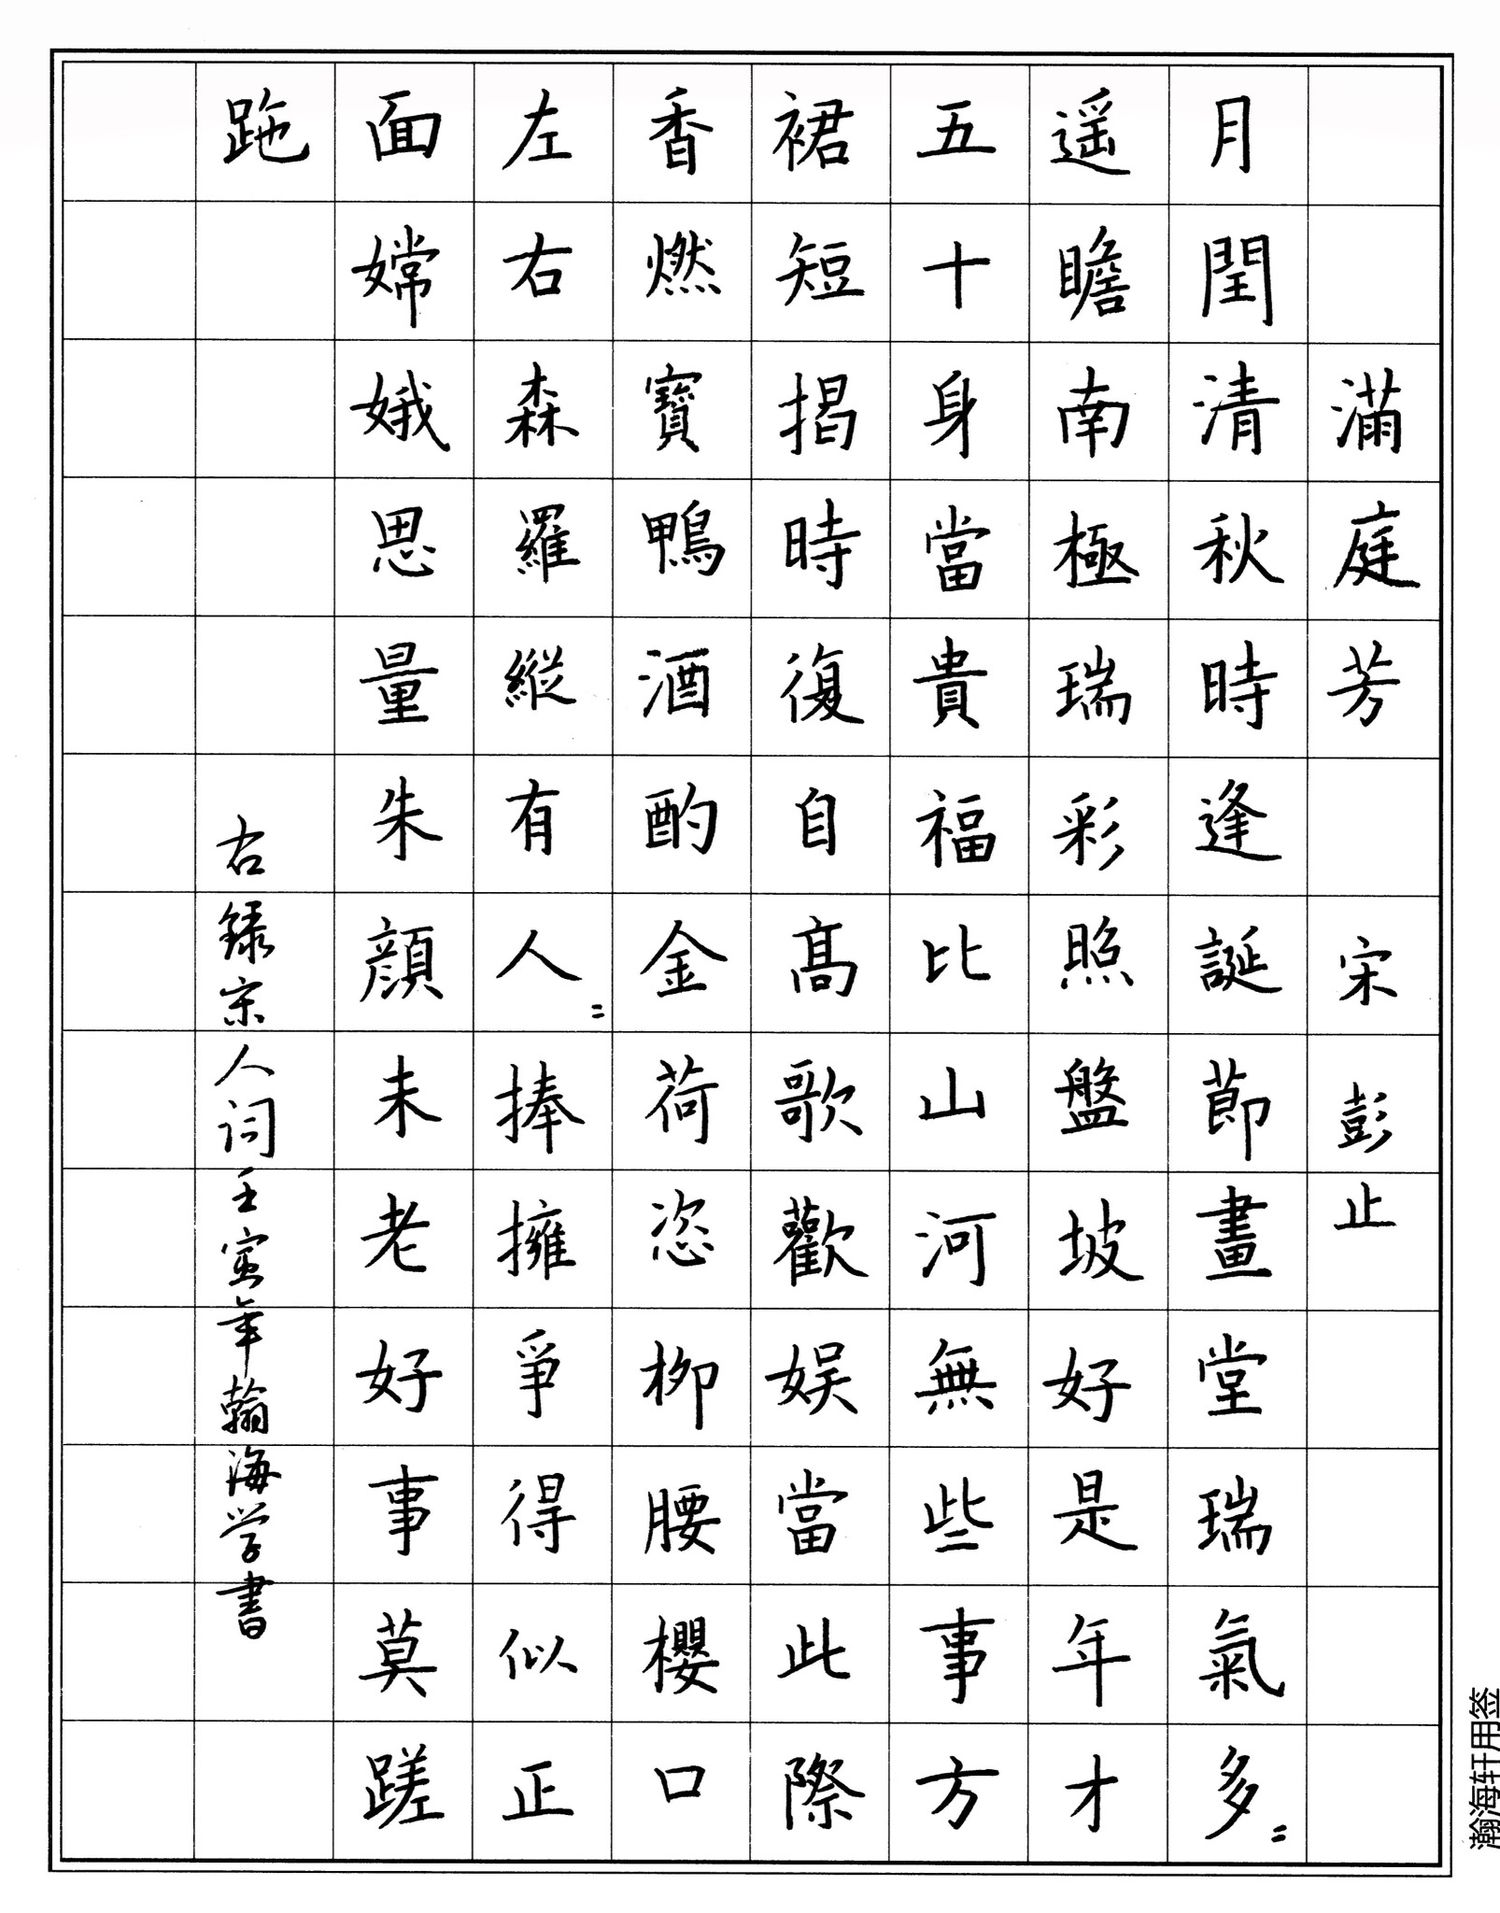 滿庭芳 宋 彭止
月閏清秋時逢誕節畫堂瑞氣多〻
遥瞻南極瑞彩照盤坡好是年才
五十身當貴福比山河無些事方
裙短揭時復自高歌歡娱當此際
香燃寶鴨酒酌金荷恣柳腰櫻口
左右森羅縱有人〻捧擁爭得似正
面嫦娥思量朱顔未老好事莫蹉
跎
右録宋人词壬寅年翰海学書
瀚海轩用签